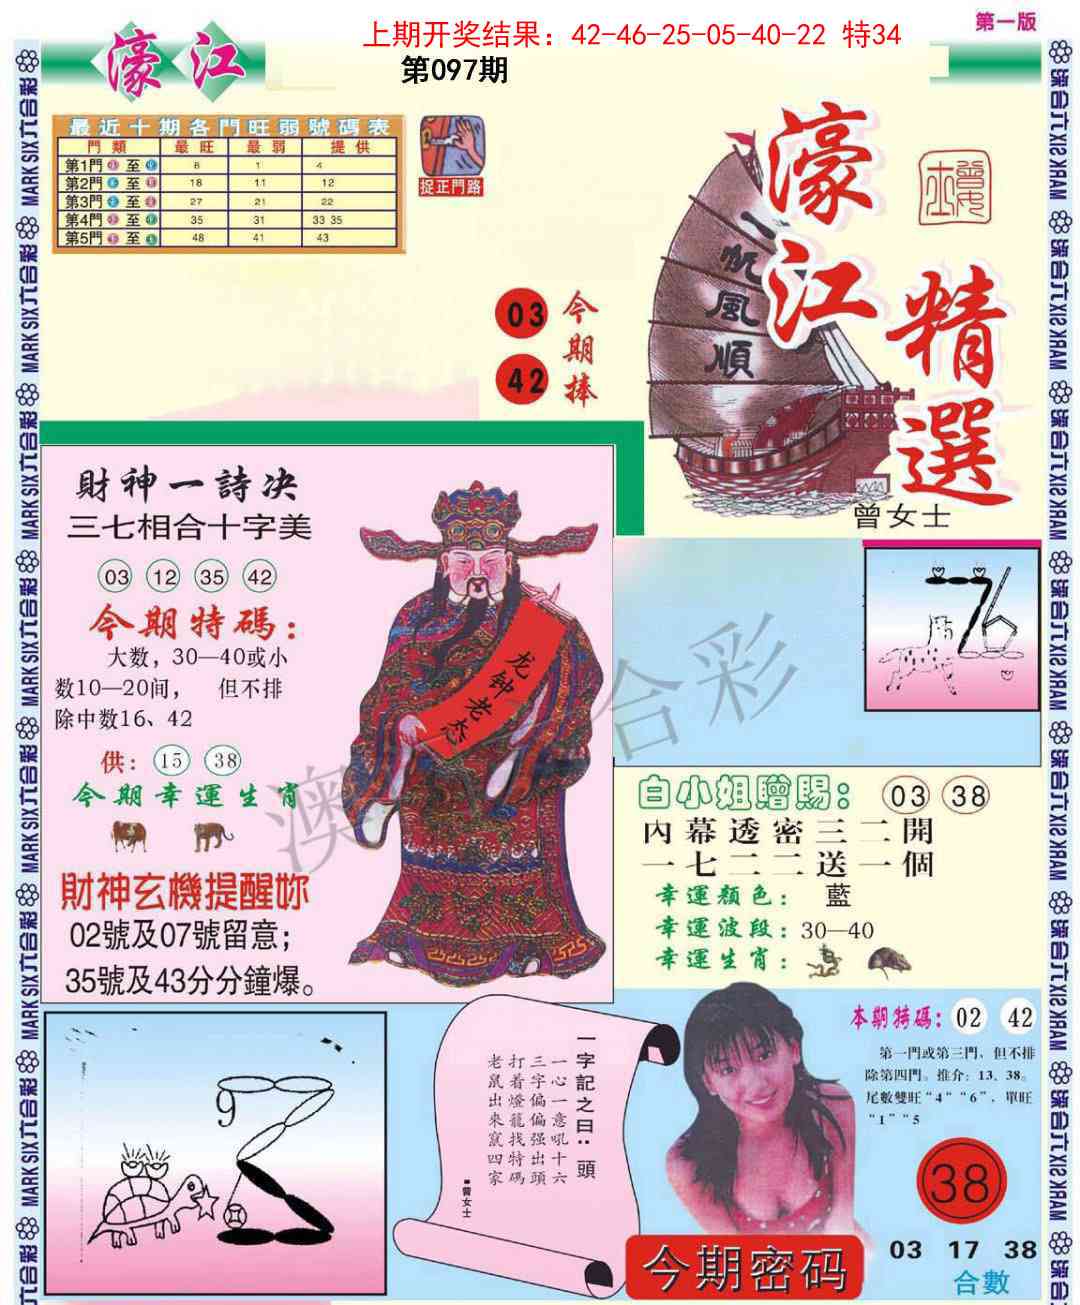 上期开奖结果：42-46-25-05-40-22 特34
第一版
第097期
濠江
最近十期各門旺弱號碼表
門類 最旺 最弱 提供
第1門 至 8 1 4
第2門 至 18 11 12
第3門 至 27 21 22
第4門 至 35 31 33 35
第5門 至 48 41 43
捉正門路
03
42
今期捧
濠江
精選
一帆風順
曾女士
財神一詩决
三七相合十字美
03 12 35 42
今期特碼：
大数，30—40或小
数10—20间， 但不排
除中数16、42
供：15 38
今期幸運生肖
財神玄機提醒妳
02號及07號留意；
35號及43分分鐘爆。
龙钟老态
76
馬
白小姐贈賜：03 38
內幕透密三二開
一七二二送一個
幸運顏色：藍
幸運波段：30—40
幸運生肖：
9
一字記之曰：頭
一心一意吼十六
三字偏偏强出頭
打着燈籠找特碼
老鼠出來竄四家
■曾女士
本期特碼：02 42
第一門或第三門、但不排
除第四門。推介：13、38。
尾數雙旺“4”“6”，單旺
“1”“5
38
03 17 38
合數
今期密码
MARK SIX六合彩
澳 合彩